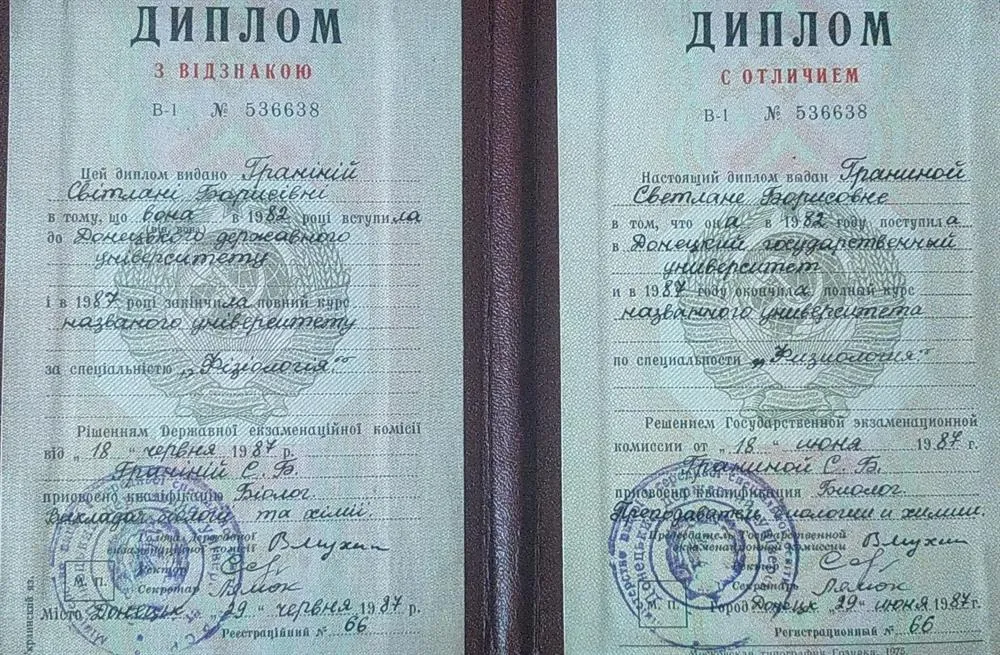 ДИПЛОМ
З ВІДЗНАКОЮ
В-І № 536638
Цей диплом видано Граніній
Світлані Борисівні
в тому, що вона в 1982 році вступила
до Донецького державного
університету
і в 1987 році закінчила повний курс
названого університету
за спеціальністю „Фізіологія"
Рішенням Державної екзаменаційної комісії
від „18" червня 1987 р.
Граніній С. Б.
присвоєно кваліфікацію Біолог.
Викладач біології та хімії.
Голова державної
екзаменаційної комісії
Ректор
Секретар
М. П.
Місто Донецьк „29" червня 1987 р.
Реєстраційний № 66
ДИПЛОМ
С ОТЛИЧИЕМ
В-І № 536638
Настоящий диплом выдан Граниной
Светлане Борисовне
в том, что она в 1982 году поступила
в Донецкий государственный
университет
и в 1987 году окончила полный курс
названного университета
по специальности „Физиология"
Решением Государственной экзаменационной
комиссии от „18" июня 1987 г.
Граниной С. Б.
присвоена квалификация Биолог.
Преподаватель биологии и химии.
Председатель Государственной
экзаменационной комиссии
Ректор
Секретарь
М. П.
Город Донецк „29" июня 1987 г.
Регистрационный № 66
Московская типография Гознака. 1975.